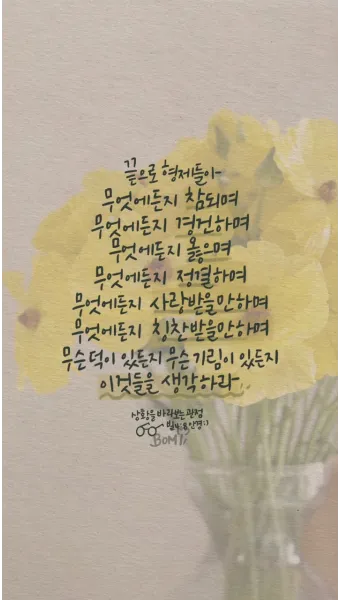 끝으로 형제들아
무엇에든지 참되며
무엇에든지 경건하며
무엇에든지 옳으며
무엇에든지 정결하며
무엇에든지 사랑받을만하며
무엇에든지 칭찬받을만하며
무슨덕이 있든지 무슨 기림이 있든지
이것들을 생각하라
상황을 바라보는 관점
빌4:8 안경:)
BOMI